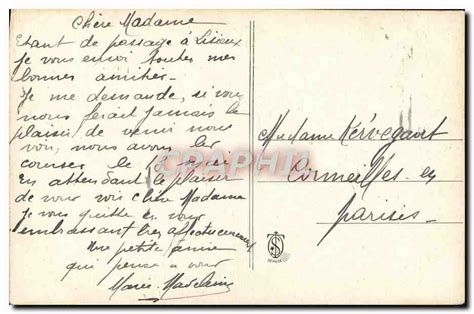 Chère Madame
Etant de passage à Lisieux
je vous envoi toutes mes
bonnes amitiés-
Je me demande, si vous
nous ferait jamais le
plaisir de venir nous
voir, nous avons les
courses le
En attendant le plaisir
de vous voir Chère Madame
Je vous quitte en vous
embrassant bien affectueusement
Une petite amie
qui pense a vous
Marie-Madeleine
Madame Kervegant
Cormeilles-en
parisis-